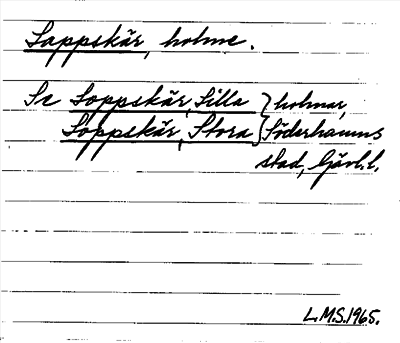 Sappskär, holme.
Se Soppskär, Lilla } holmar,
Soppskär, Stora } Söderhamns
stad, Gävl.l.
L.M.S.1965.